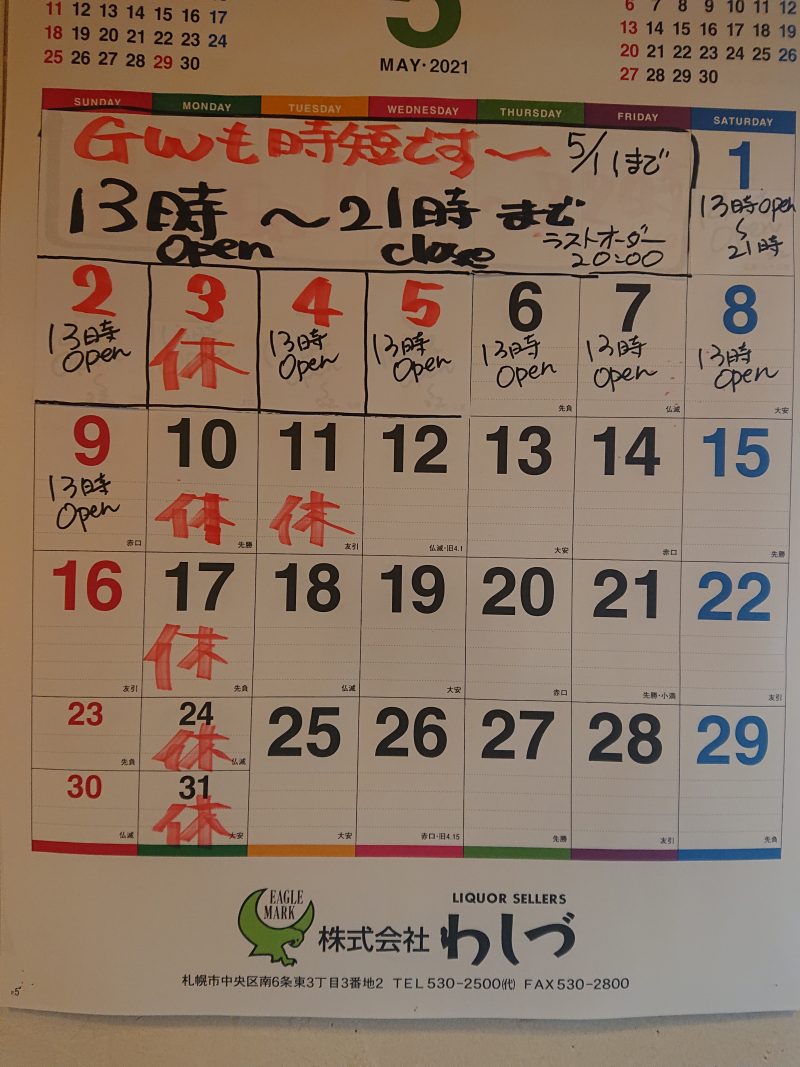 11 12 13 14 15 16 17
18 19 20 21 22 23 24
25 26 27 28 29 30
5
MAY・2021
6 7 8 9 10 11 12
13 14 15 16 17 18 19
20 21 22 23 24 25 26
27 28 29 30
SUNDAY MONDAY TUESDAY WEDNESDAY THURSDAY FRIDAY SATURDAY
GWも時短です〜 5/11まで
13時 〜21時 まで
Open close ラストオーダー
20:00
1
13時Open
〜
21時
2 3 4 5 6 7 8
13時 休 13時 13時 13時 13時 13時
Open Open Open Open Open Open
先負 仏滅 大安
9 10 11 12 13 14 15
13時 休 休
Open
赤口 先勝 友引 仏滅・旧4.1 大安 赤口 先勝
16 17 18 19 20 21 22
休
友引 先負 仏滅 大安 赤口 先勝・小満 友引
23 24 25 26 27 28 29
休
先負 仏滅
30 31
休
仏滅 大安 大安 赤口・旧4.15 先勝 友引 先負
EAGLE
MARK
LIQUOR SELLERS
株式会社 わしづ
札幌市中央区南6条東3丁目3番地2 TEL530-2500㈹ FAX530-2800